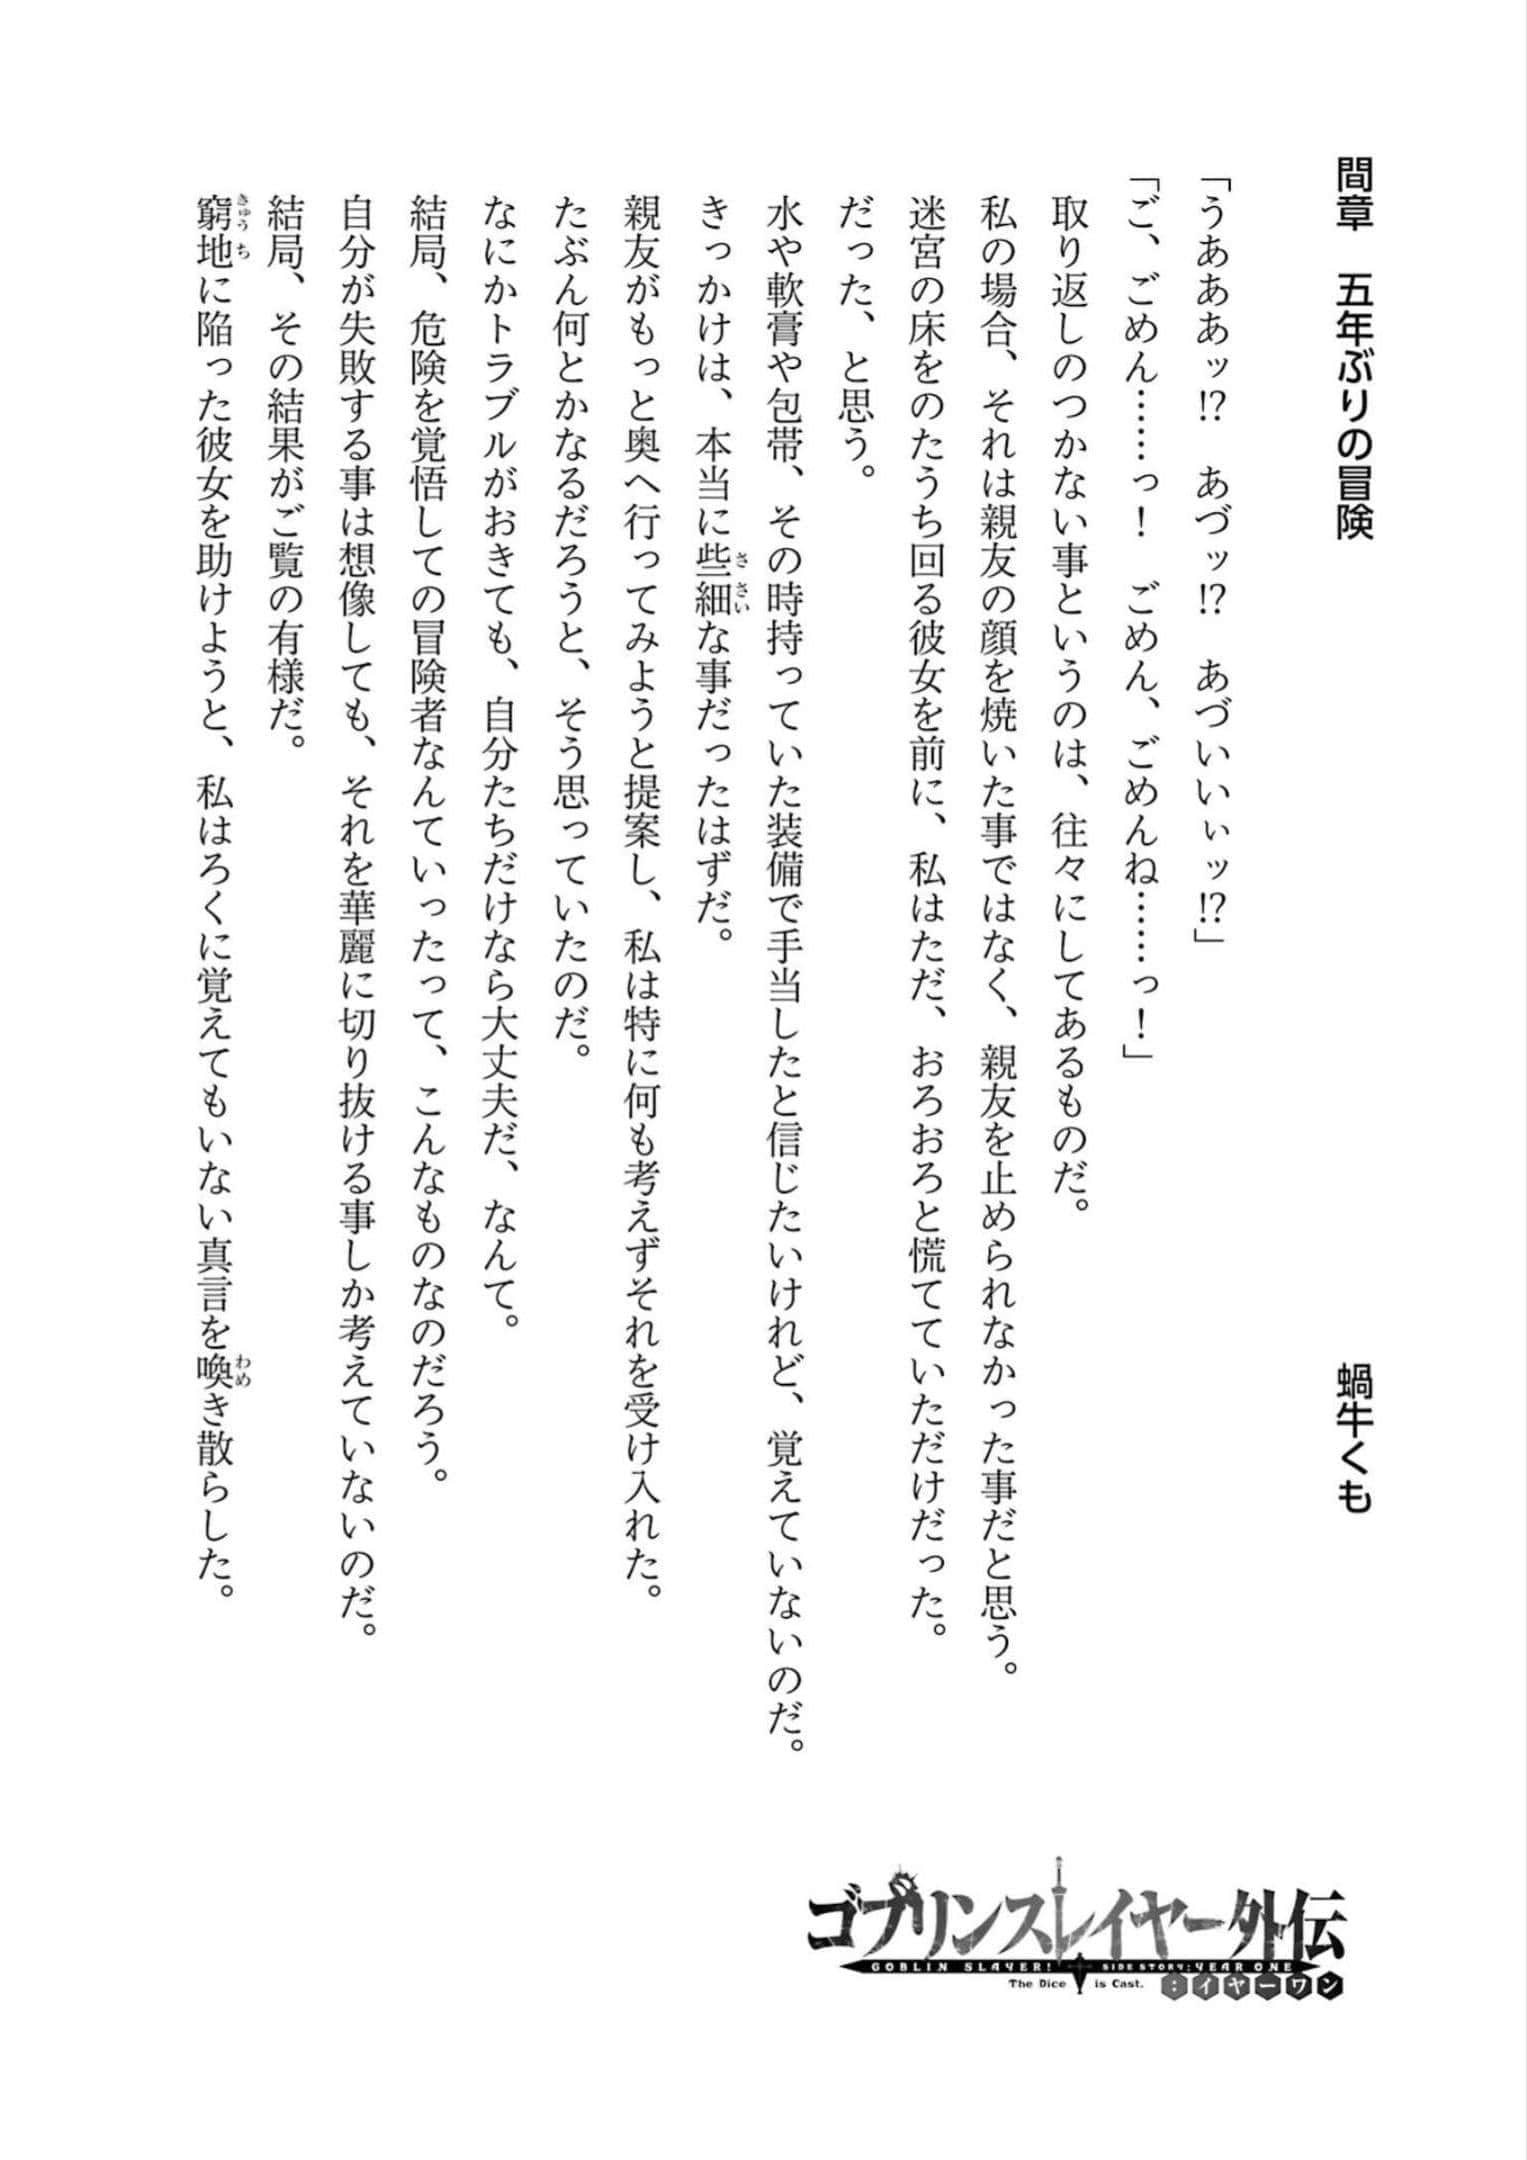 間章　五年ぶりの冒険　蝸牛くも
「うあああッ!?　あづッ!?　あづいいぃッ!?」
「ご、ごめん……っ！　ごめん、ごめんね……っ！」
取り返しのつかない事というのは、往々にしてあるものだ。
私の場合、それは親友の顔を焼いた事ではなく、親友を止められなかった事だと思う。
迷宮の床をのたうち回る彼女を前に、私はただ、おろおろと慌てていただけだった。
だった、と思う。
水や軟膏や包帯、その時持っていた装備で手当したと信じたいけれど、覚えていないのだ。
きっかけは、本当に些細な事だったはずだ。
親友がもっと奥へ行ってみようと提案し、私は特に何も考えずそれを受け入れた。
たぶん何とかなるだろうと、そう思っていたのだ。
なにかトラブルがおきても、自分たちだけなら大丈夫だ、なんて。
結局、危険を覚悟しての冒険者なんていったって、こんなものなのだろう。
自分が失敗する事は想像しても、それを華麗に切り抜ける事しか考えていないのだ。
結局、その結果がご覧の有様だ。
窮地に陥った彼女を助けようと、私はろくに覚えてもいない真言を喚き散らした。
ゴブリンスレイヤー外伝
GOBLIN SLAYER! SIDE STORY: YEAR ONE
The Dice is Cast.
：イヤーワン